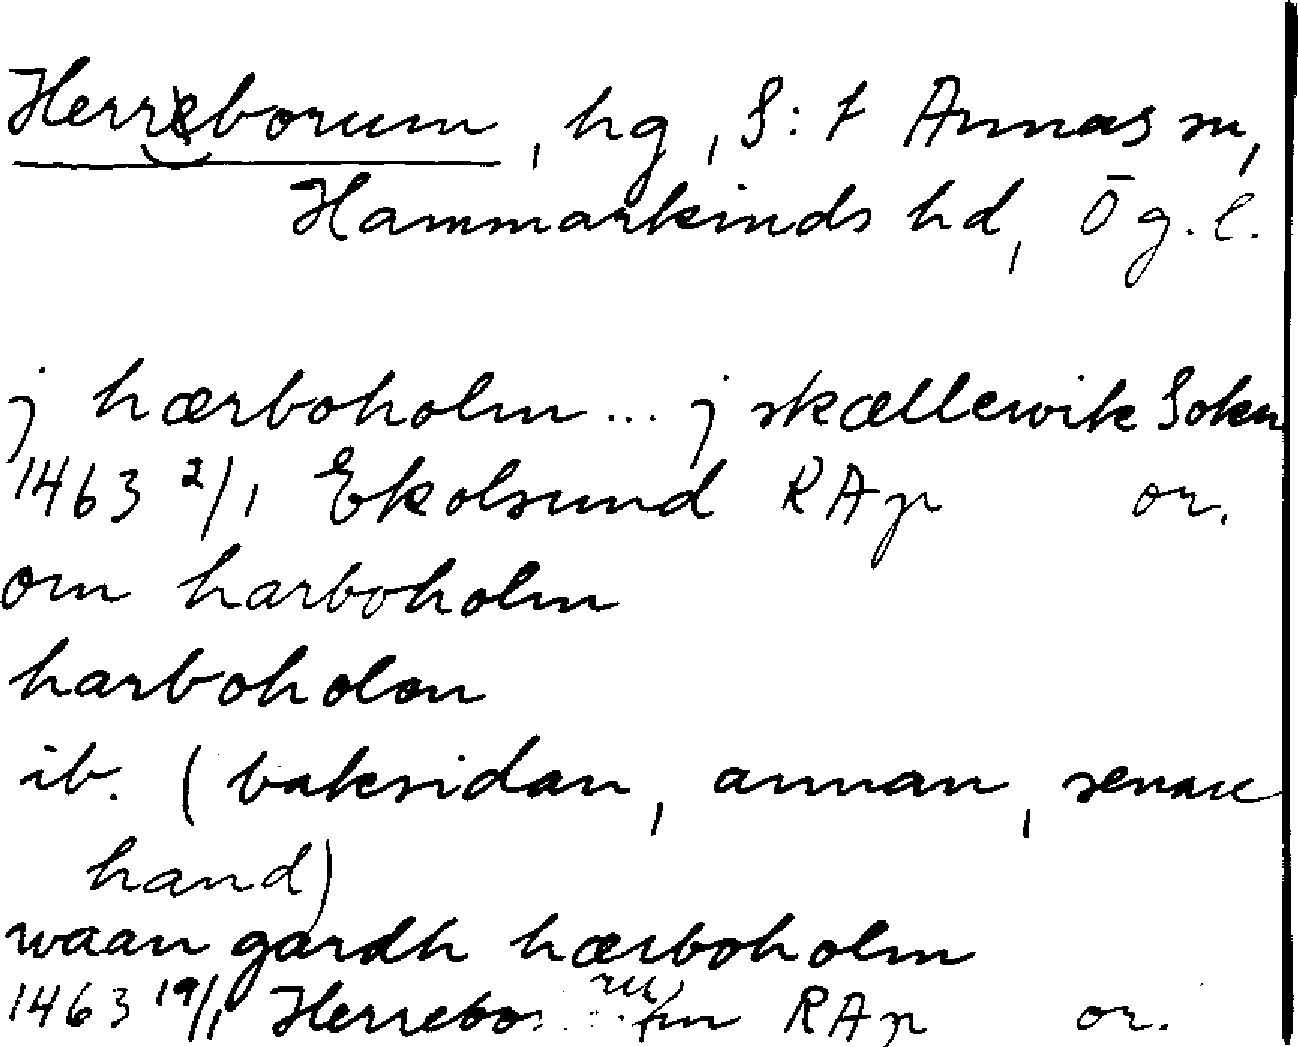 Herreborum, hg, S:t Annas sn,
Hammarkinds hd, Ög.l.
j hærboholm... j skællewik Sokn
1463 2/1 Ekolsund RAp or.
om harboholm
harboholm
ib. (baksidan, annan, senare
hand)
waan gardh hærboholm
1463 19/1 Herreborum RAp or.